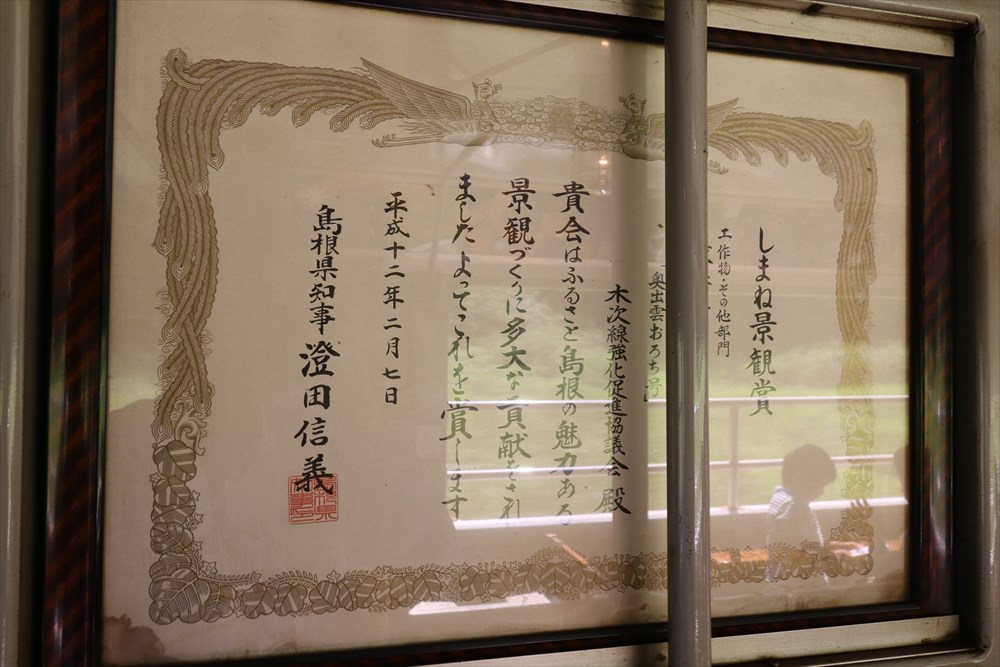 しまね景観賞
工作物・その他部門
「奥出雲おろち号」
木次線強化促進協議会 殿
貴会はふるさと島根の魅力ある
景観づくりに多大な貢献をされ
ましたよってこれを賞します
平成十二年二月七日
島根県知事 澄田信義